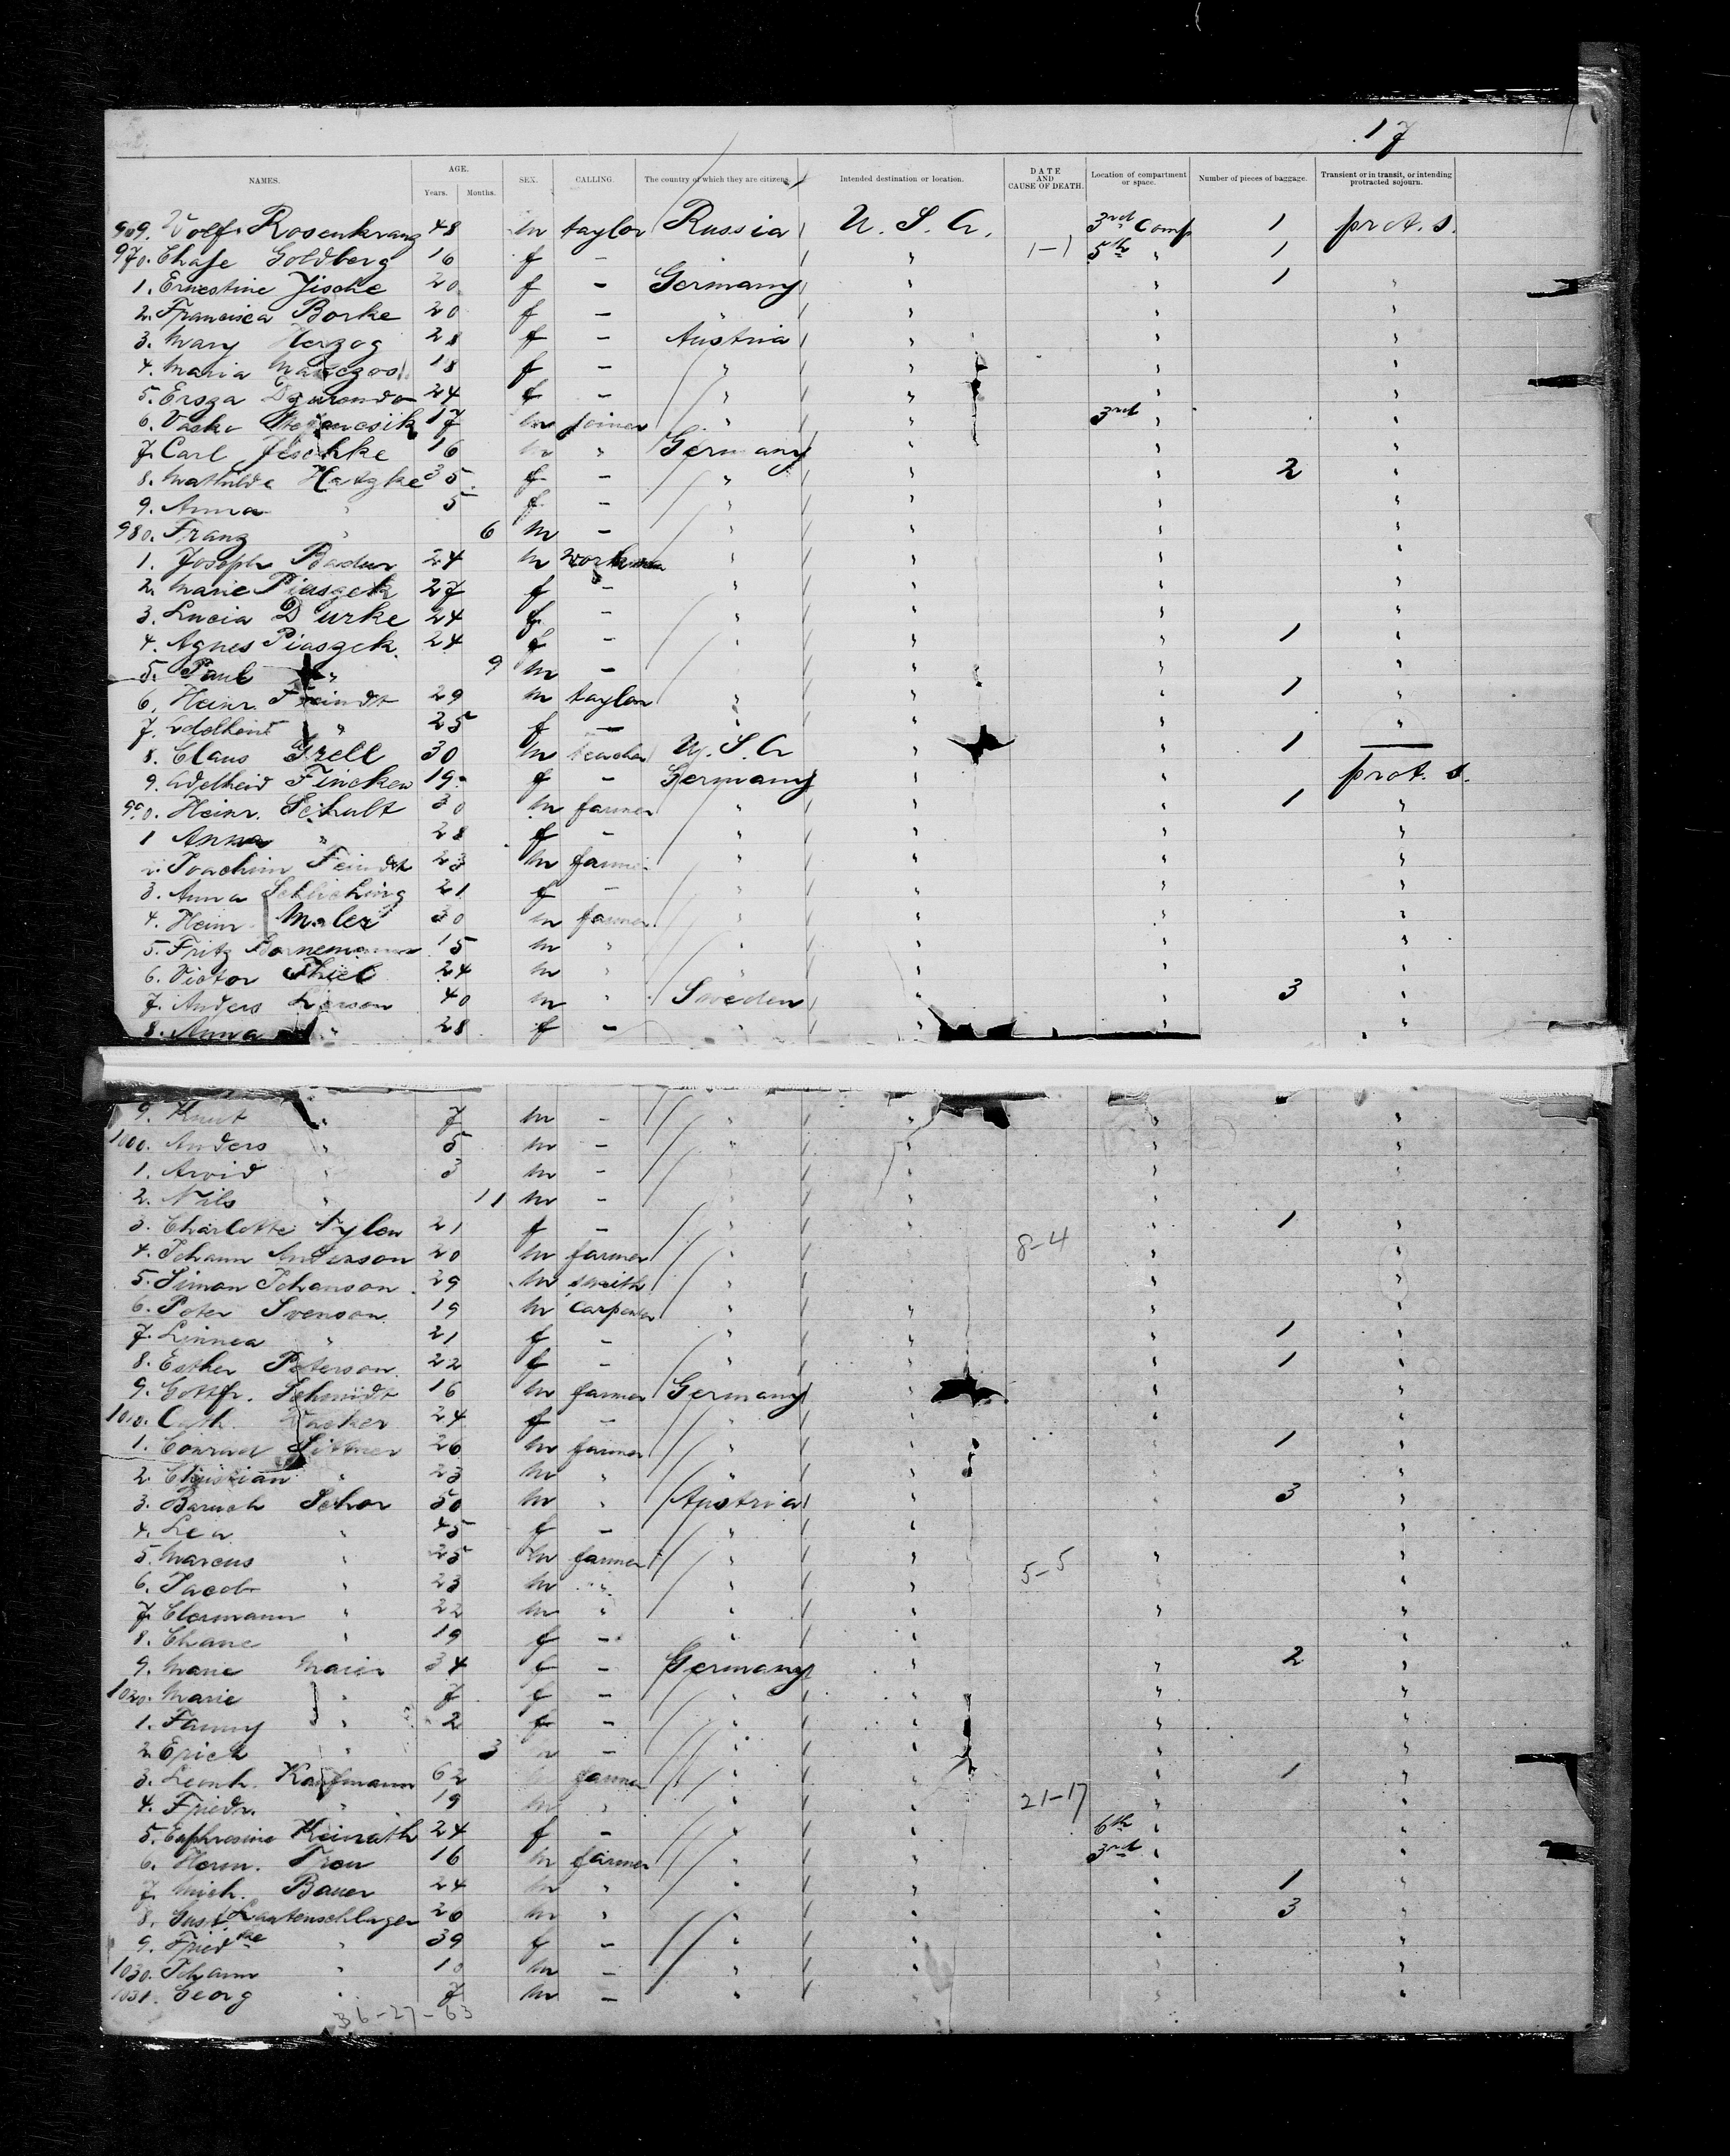 17
NAMES. AGE. Years. Months. SEX. CALLING. The country of which they are citizens. Intended destination or location. DATE AND CAUSE OF DEATH. Location of compartment or space. Number of pieces of baggage. Transient or in transit, or intending protracted sojourn.
969. Wolf Rosenkranz 48 m taylor Russia U. S. A. 3rd Comp 1 prot. s.
970. Chase Goldberg 16 f - " " 1-1 5th " 1
1. Ernestine Jische 20 f - Germany " " 1 "
2. Francisca Borke 20 f - " " " "
3. Mary Herzog 28 f - Austria " " "
4. Maria 18 f - " " " "
5. Ersza 24 f - " " " "
6. Vaska 17 m joiner " " 3rd " "
7. Carl Jeschke 16 m " Germany " " "
8. Mathilde Hatzke 35 f - " " " 2 "
9. Anna " 5 f - " " " "
980. Franz " 6 m - " " " "
1. Joseph Badur 24 m workman " " " "
2. Marie Piaszek 27 f - " " " "
3. Lucia Durke 24 f - " " " "
4. Agnes Piaszek 24 f - " " " 1 "
5. Paul " 9 m - " " "
6. Heinr. Feindt 29 m taylor " " " 1 "
7. Adelheid " 25 f - " " " "
8. Claus Grell 30 m teacher U. S. A " " 1 —
9. Adelheid Fincken 19 f - Germany " " prot. s.
990. Heinr. Schult 30 m farmer " " " 1 "
1 Anna " 28 f - " " " "
2. Joachim Feindt 23 m farmer " " " "
3. Anna Schlichting 21 f - " " " "
4. Heinr. 30 m farmer " " " "
5. Fritz Bornemann 15 m " " " " "
6. Victor Thiel 24 m " " " " "
7. Anders Larson 40 m " Sweden " " 3 "
8. Anna " 28 f - " " " "
9. Knut " 7 m - " " " "
1000. Anders " 5 m - " " " "
1. Arvid " 3 m - " " "
2. Nils " 11 m - " " "
3. Charlotte Nylen 21 f - " " " 1 "
4. Johann Anderson 20 m farmer " " 8-4 " "
5. Simon Johanson 29 m smith " " " "
6. Peter Svenson 19 m Carpenter " " " "
7. Linnea " 21 f - " " " 1 "
8. Esther Peterson 22 f - " " " 1 "
9. Gottfr. Schmidt 16 m farmer Germany " " "
1010. Cath. 24 f - " " " "
1. Conrad Sittner 26 m farmer " " " 1 "
2. Christian " 23 m " " " " "
3. Baruch Schor 50 m " Austria " " 3 "
4. Lea " 45 f - " " " "
5. Marcus " 25 m farmer " " " "
6. Jacob " 23 m " " " 5-5 " "
7. Clermann " 22 m " " " " "
8. Chane " 19 f - " " "
9. Marie Maier 34 f - Germany " " 2 "
1020. Marie " 7 f - " " " "
1. Fanny " 2 f - " " " "
2. Erich " 3 m - " " " "
3. Leonh. Kaufmann 62 m farmer " " " 1 "
4. Friedr. " 19 m " " " 21-17 " "
5. Euphrosine Keinath 24 f - " " 6th " "
6. Herm. Tron 16 m farmer " " 3rd " "
7. Mich. Bauer 24 m " " " " 1 "
8. Gust. Lautenschlager 20 m " " " " 3 "
9. Friedke " 39 f - " " " "
1030. Johann " 10 m - " " " "
1031. Georg " 7 m - " " "
36-27-63